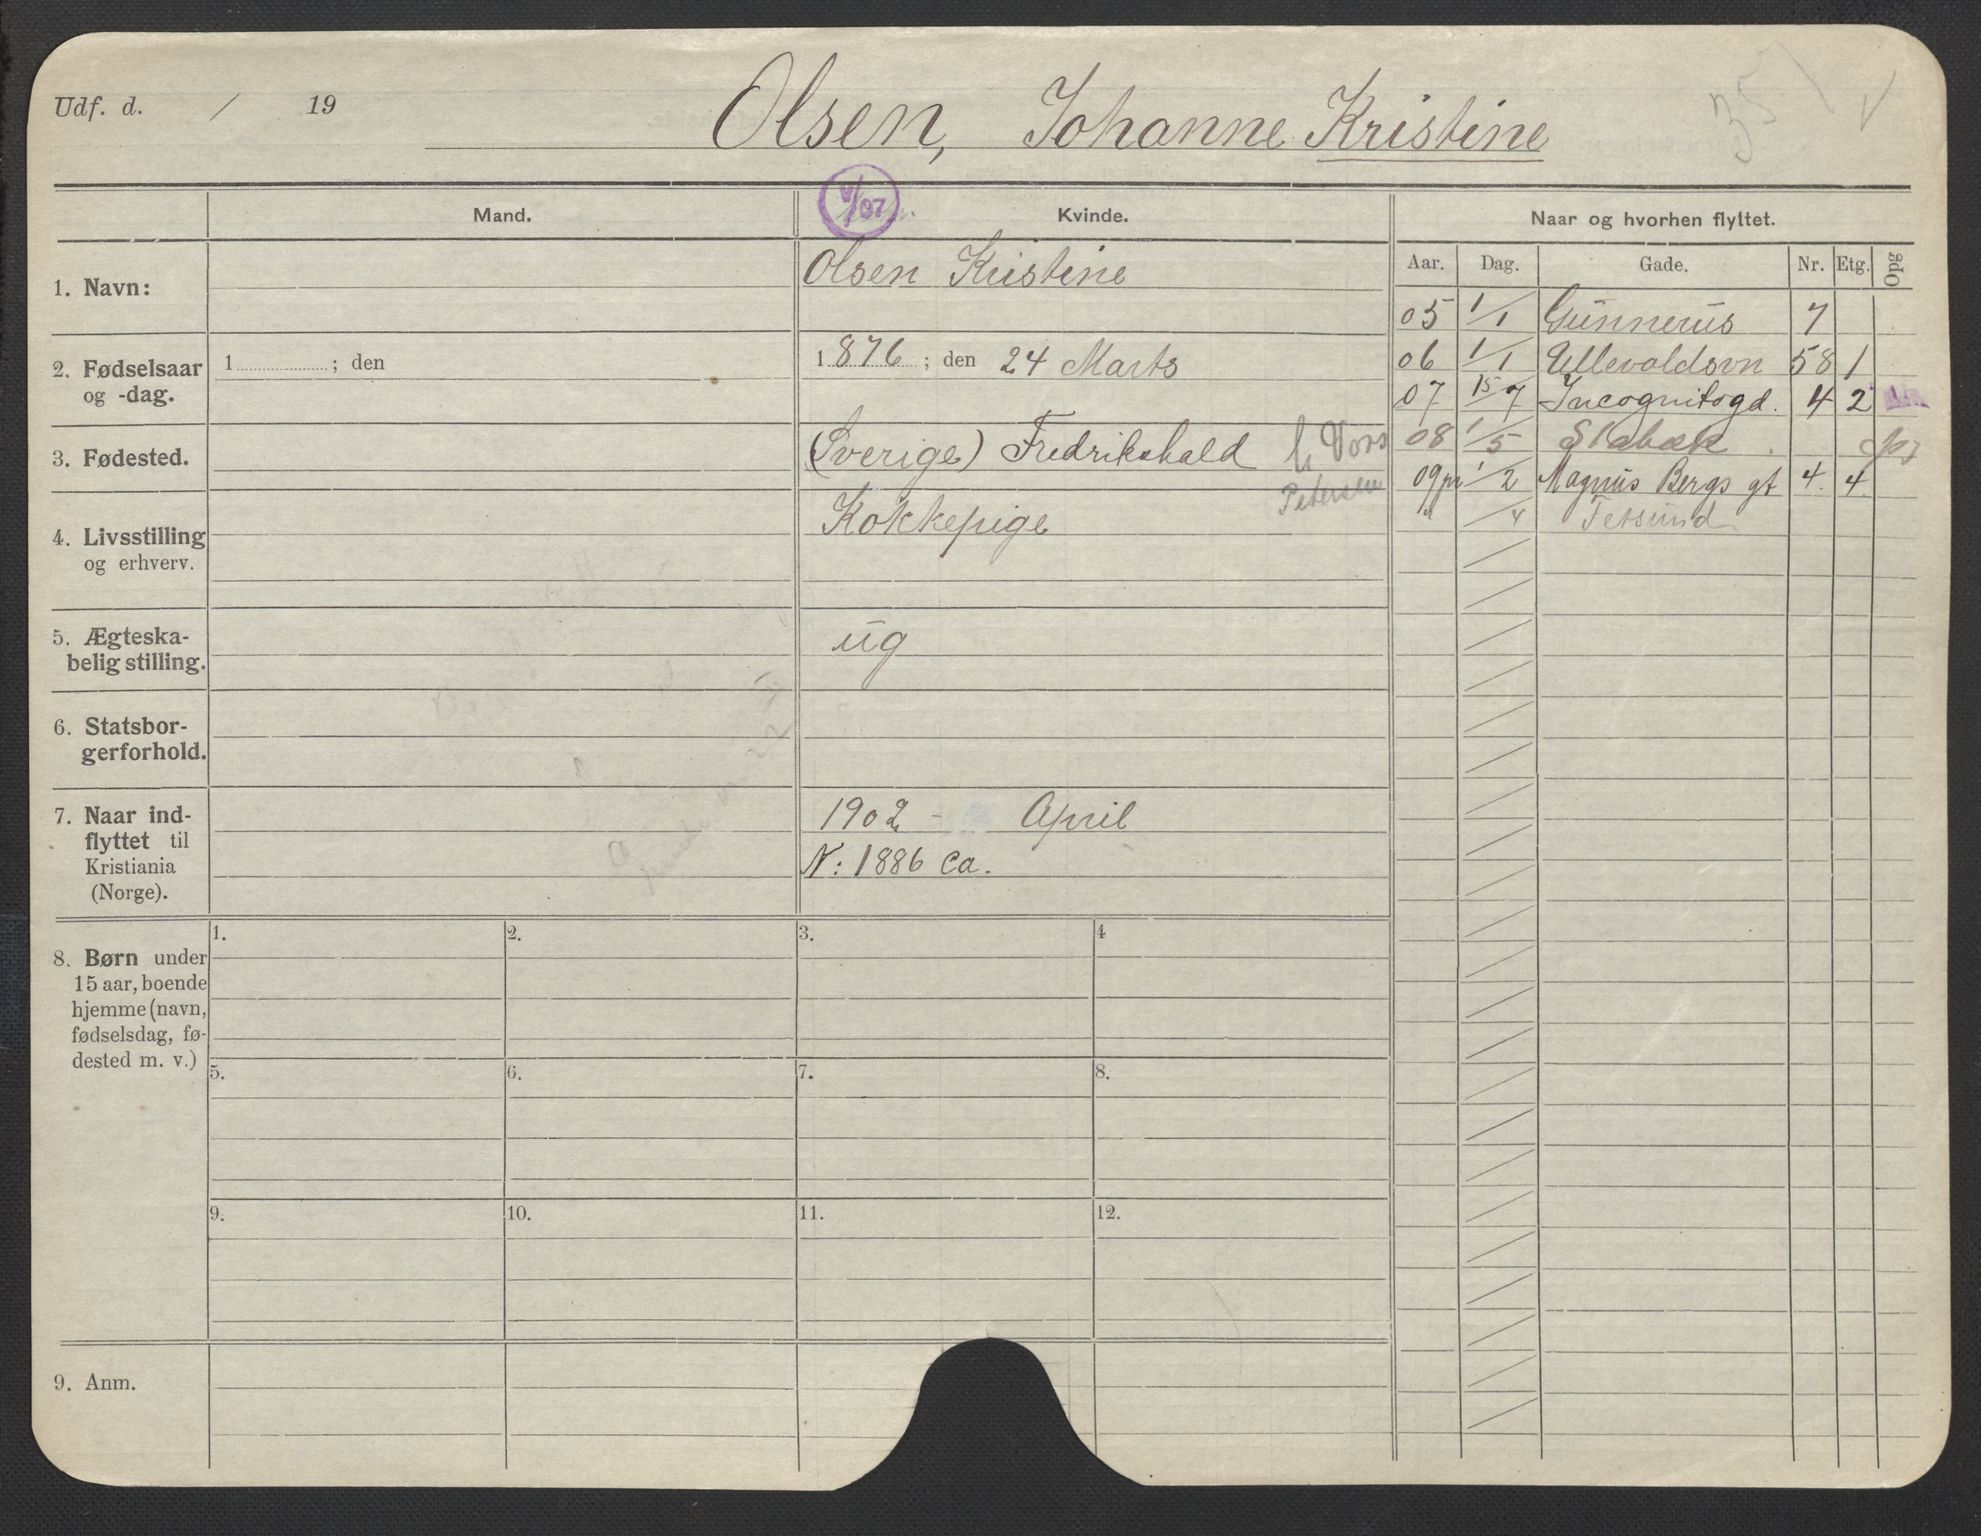 Udf. d. / 19
Olsen, Johanne Kristine
V/07
Mand.
Kvinde.
Naar og hvorhen flyttet.
Aar. Dag. Gade. Nr. Etg. Opg
1. Navn:
Olsen Kristine
2. Fødselsaar og -dag.
1 ; den
1876 ; den 24 Marts
3. Fødested.
(Sverige) Fredrikshald
Petersen
4. Livsstilling og erhverv.
Kokkepige
5. Ægteskabelig stilling.
ug
6. Statsborgerforhold.
7. Naar indflyttet til Kristiania (Norge).
1902 - April
N: 1886 ca.
05 1/1 Gunnerus 7
06 1/1 Ullevoldsvn 58 1
07 15/7 Incognitogd. 4 2
08 1/5 Stabæk
09 1/2 Magnus Bergs gt 4. 4.
" /4 Fetsund
8. Børn under
15 aar, boende
hjemme (navn,
fødselsdag, fødested m. v.)
1. 2. 3. 4
5. 6. 7. 8.
9. 10. 11. 12.
9. Anm.